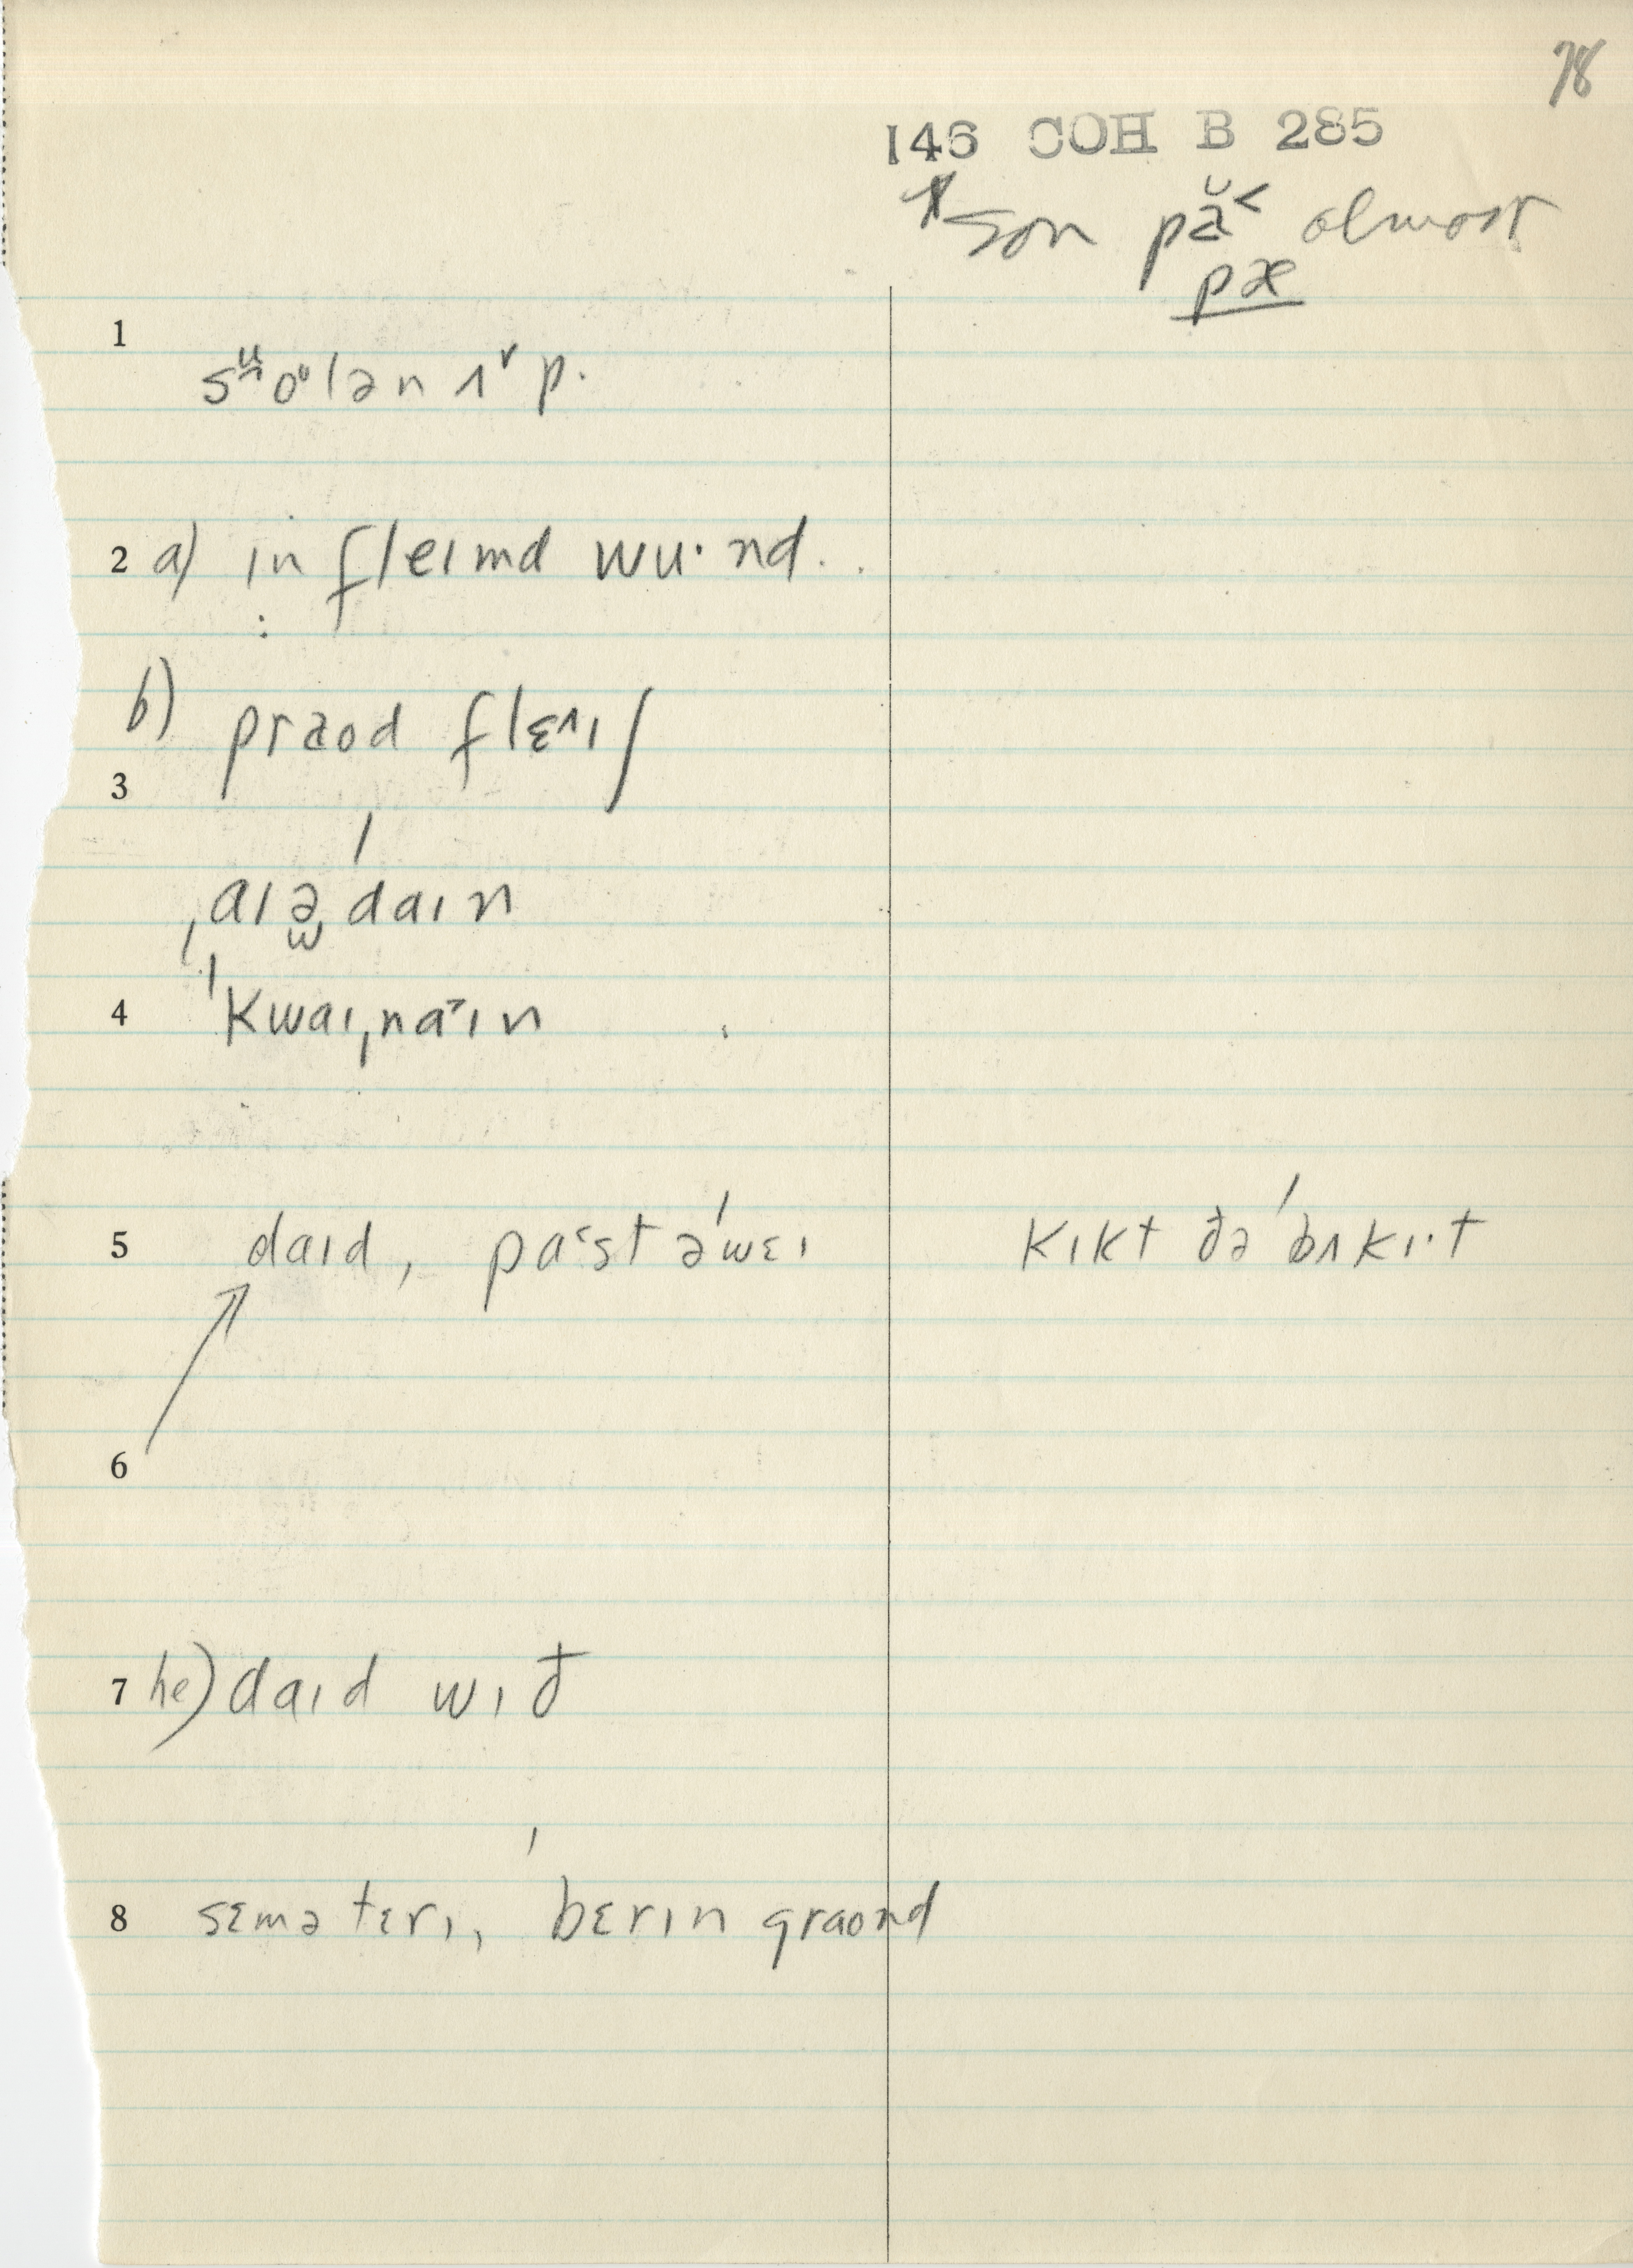 78
146 COH B 285
*son pă˂ almost
pæ
1
sᵚoᶷlən ʌ˅p.
2 a) ɪnfleɪmd wu·nd..
b) praod flɛ^ɪʃ
3
ˌaɪə̯ˈdaɪn
4 ˈkwaɪˌna˃ɪn
5 daɪd, pa˂st əˈwɛɪ kɪkt ðə ˈbʌkɪ·t
6
7 he) daɪd wɪð
8 sɛmətɛrɪ, ˈbɛrɪn graond